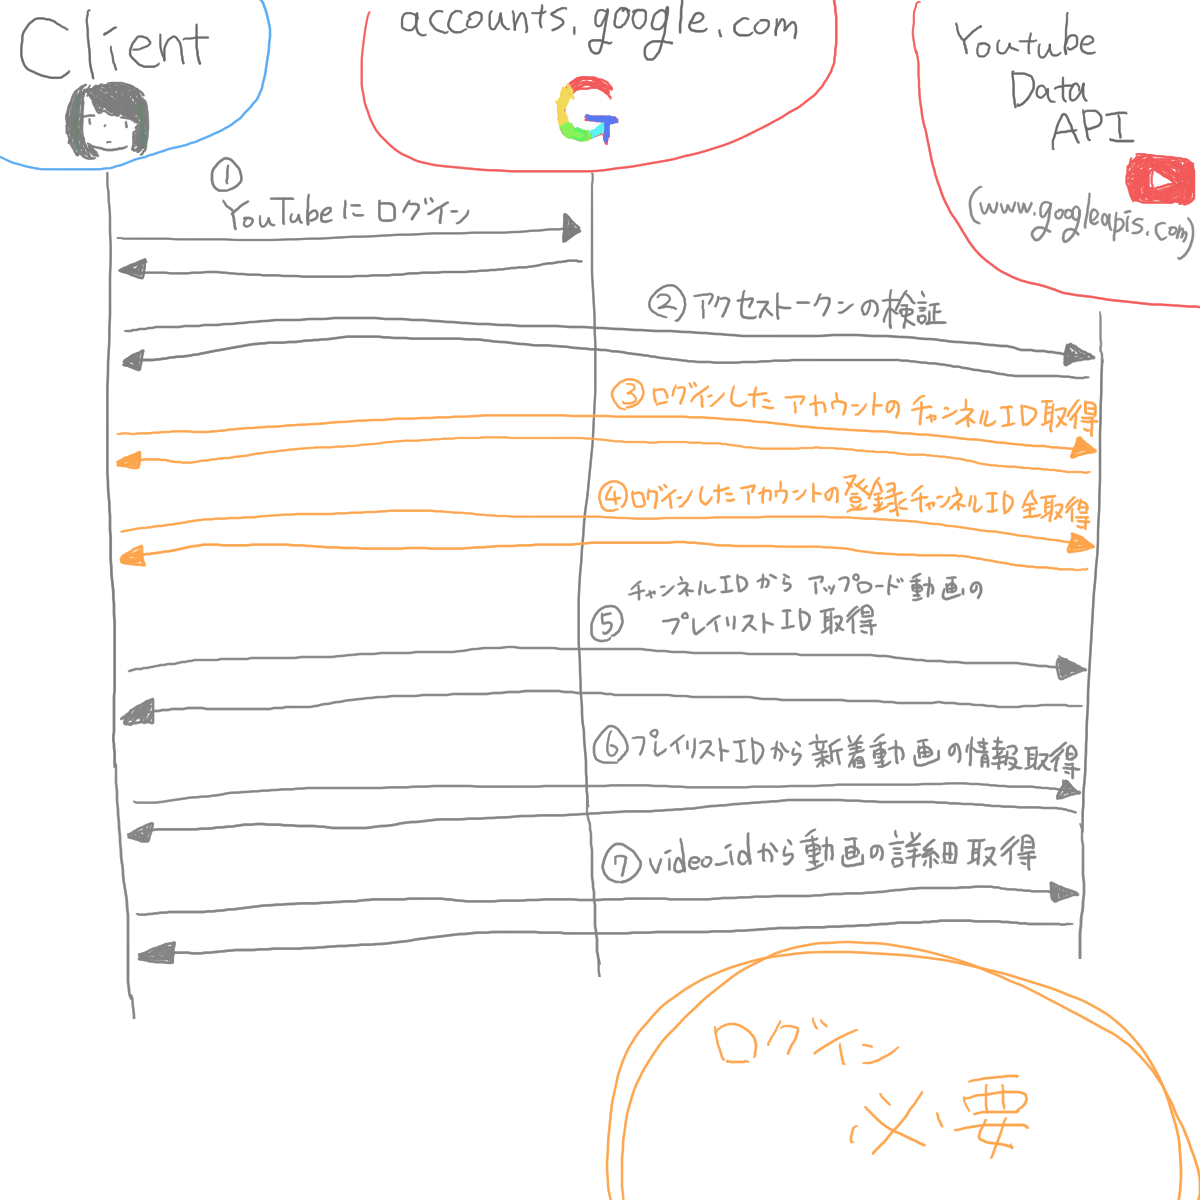 Client
accounts.google.com
Youtube
Data
API
(www.googleapis.com)
G
① YouTubeにログイン
② アクセストークンの検証
③ログインしたアカウントのチャンネルID取得
④ログインしたアカウントの登録チャンネルID全取得
⑤ チャンネルIDからアップロード動画の
プレイリストID取得
⑥プレイリストIDから新着動画の情報取得
⑦video_idから動画の詳細取得
ログイン
必要